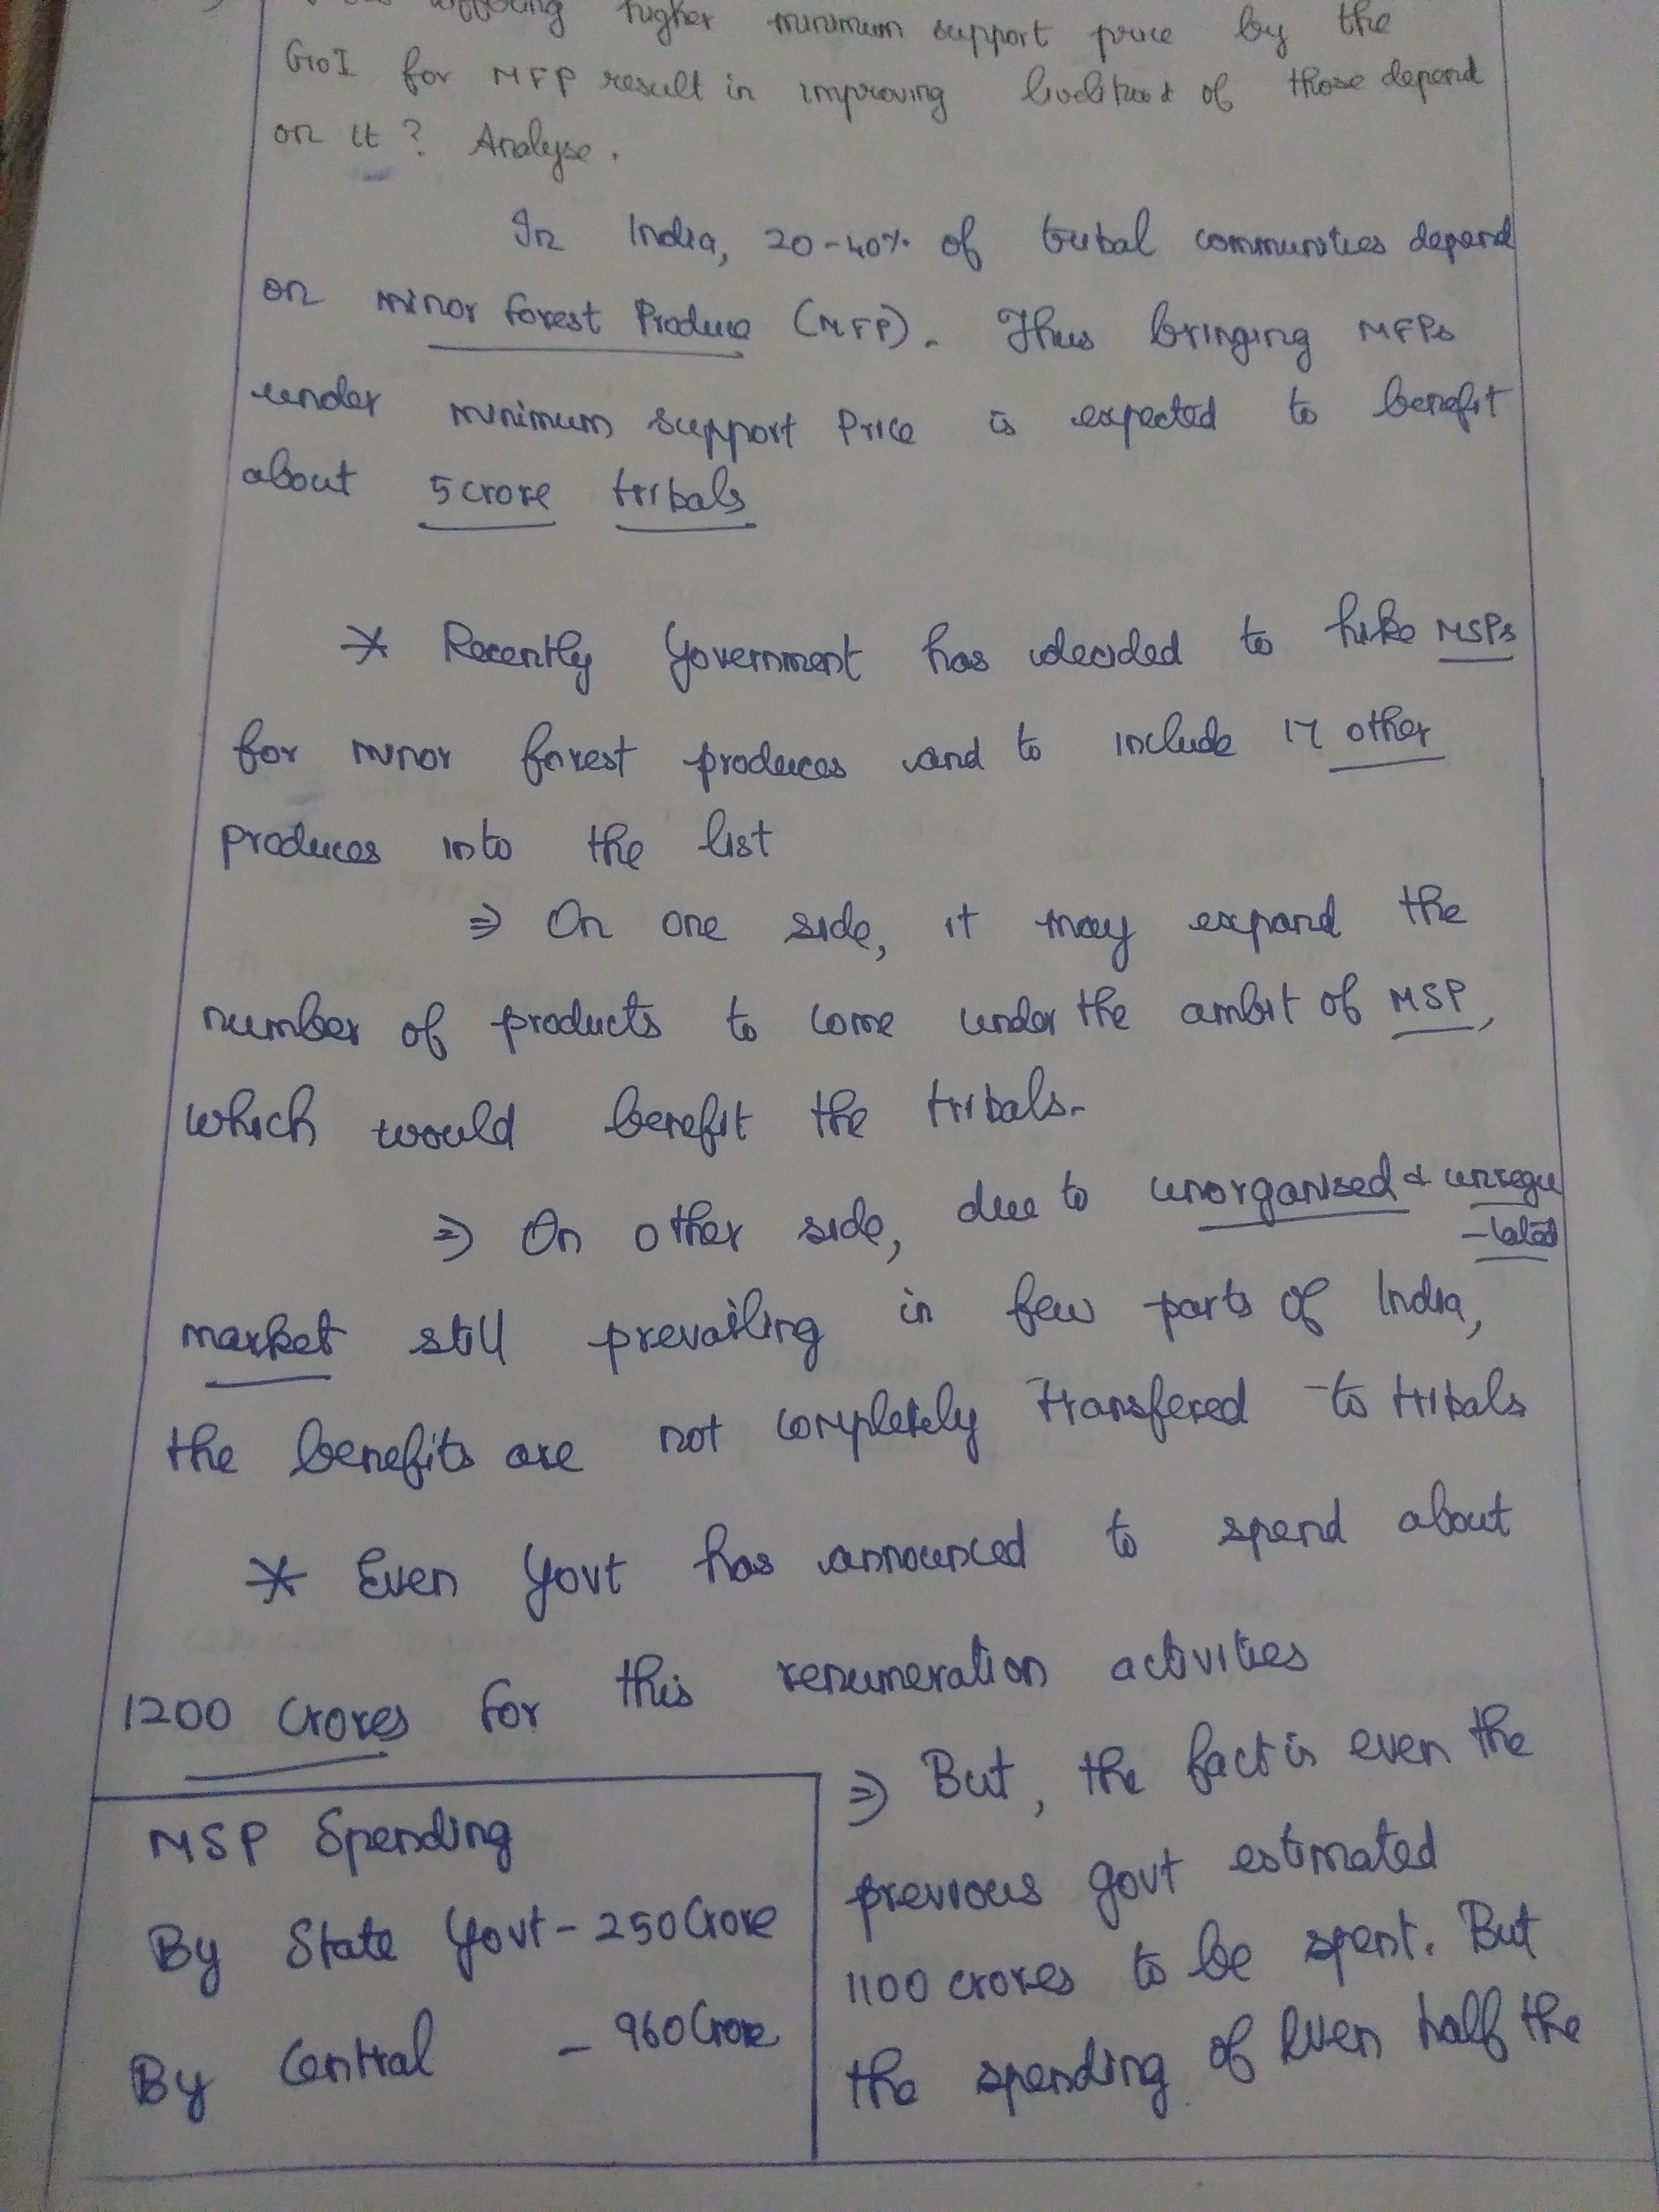 offering higher minimum support price by the
GoI for MFP result in improving livelihood of those depend
on it? Analyse.
In India, 20-40% of tribal communities depend
on minor forest Produce (MFP). Thus bringing MFPs
under minimum support Price is expected to benefit
about 5 crore tribals
* Recently Government has decided to hike MSPs
for minor forest produces and to include 17 other
produces into the list
⇒ On one side, it may expand the
number of products to come under the ambit of MSP,
which would benefit the tribals.
⇒ On other side, due to unorganised & unregu
-lated
market still prevailing in few parts of India,
the benefits are not completely transfered to tribals
* Even Govt has announced to spend about
1200 Crores for this renumeration activities
MSP Spending
By State Govt - 250 Crore
By Central - 960 Crore
⇒ But, the fact is even the
previous govt estimated
1100 crores to be spent. But
the spending of even half the